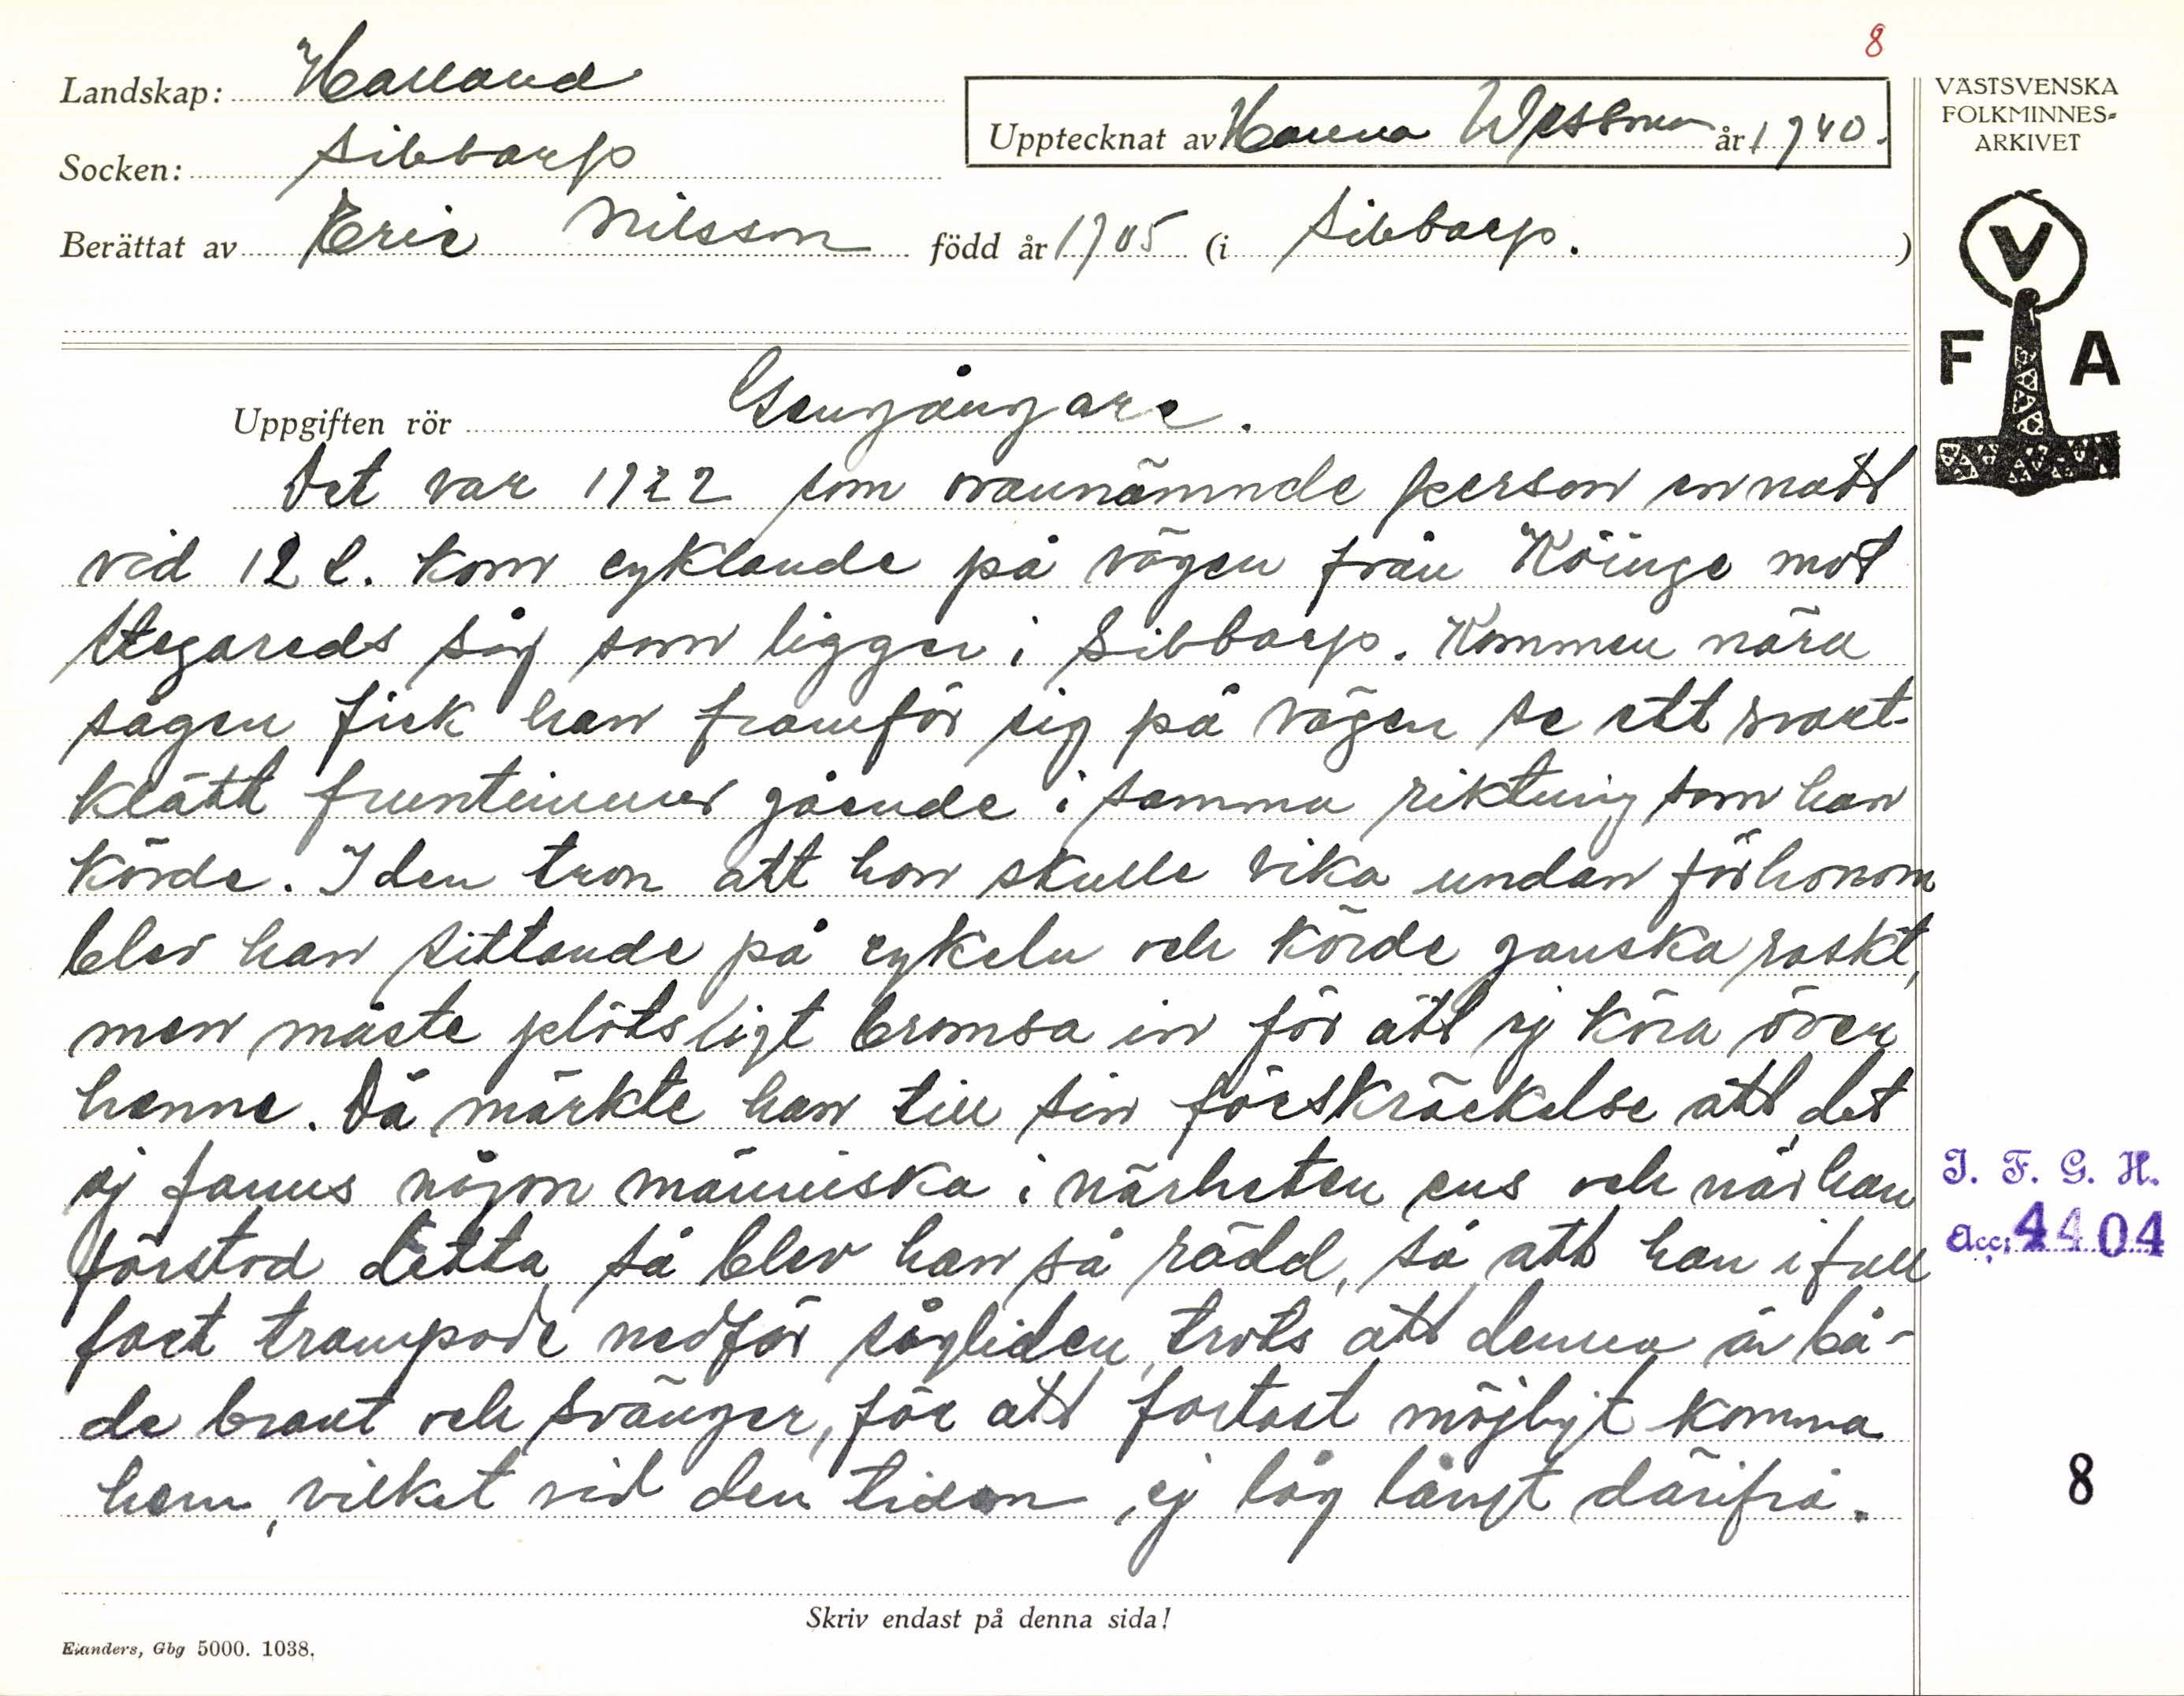 8
Landskap: Halland
Upptecknat av Hanna Wessman år 1940.
Socken: Sibbarp
Berättat av Eric Nilsson född år 1905 (i Sibbarp. )
VÄSTSVENSKA
FOLKMINNES-
ARKIVET
V
F A
Uppgiften rör Gengångare.
Det var 1922 som ovannämnde person en natt
vid 12 t. kom cyklande på vägen från Köinge mot
Stegareds såg som ligger i Sibbarp. Kommen nära
sågen fick han framför sig på vägen se ett svart-
klätt fruntimmer gående i samma riktning som han
körde. I den tron att hon skulle vika undan för honom
blev han sittande på cykeln och körde ganska raskt,
men måste plötsligt bromsa in för att ej köra över
henne. Då märkte han till sin förskräckelse att det
ej fanns någon människa i närheten ens och när han
förstod detta så blev han så rädd, så att han i full
fart trampade nedför sågliden, trots att denna är bå-
de brant och svänger, för att fortast möjligt komma
hem, vilket vid den tiden ej låg långt därifrå.
I. F. G. H.
Acc: 4404
8
Skriv endast på denna sida!
Elanders, Gbg 5000. 1038.